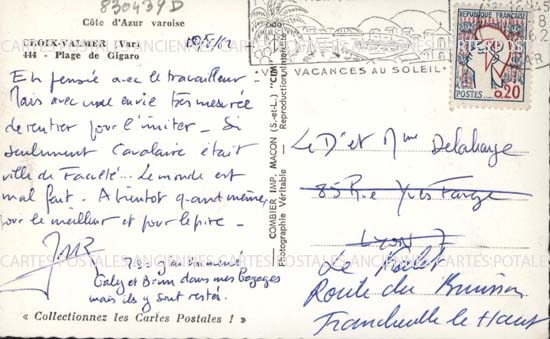 830439D
Côte d'Azur varoise
CROIX-VALMER (Var)
444 - Plage de Gigaro
En pensée avec le travailleur -
Mais avec une envie très mesurée
de rentrer pour l'imiter - Si
seulement Cavalaire était
ville de Faculté... Le monde est
mal fait. A bientôt quand même,
pour le meilleur et pour le pire -
P.S. J'ai emmené
Galy et Brun dans mes bagages
mais ils y sont restés.
« Collectionnez les Cartes Postales ! »
COMBIER IMP. MACON (S.-et-L.) "CIM"
Photographie Véritable - Reproduction interdite
VACANCES AU SOLEIL
REPUBLIQUE FRANÇAISE
POSTES 0,20
Le Dr et Mme Delahaye
85 Rue Yves Farge
Lyon 7
Le
Route du Buisson
Francheville le Haut
CARTES POSTALES ANCIENNES